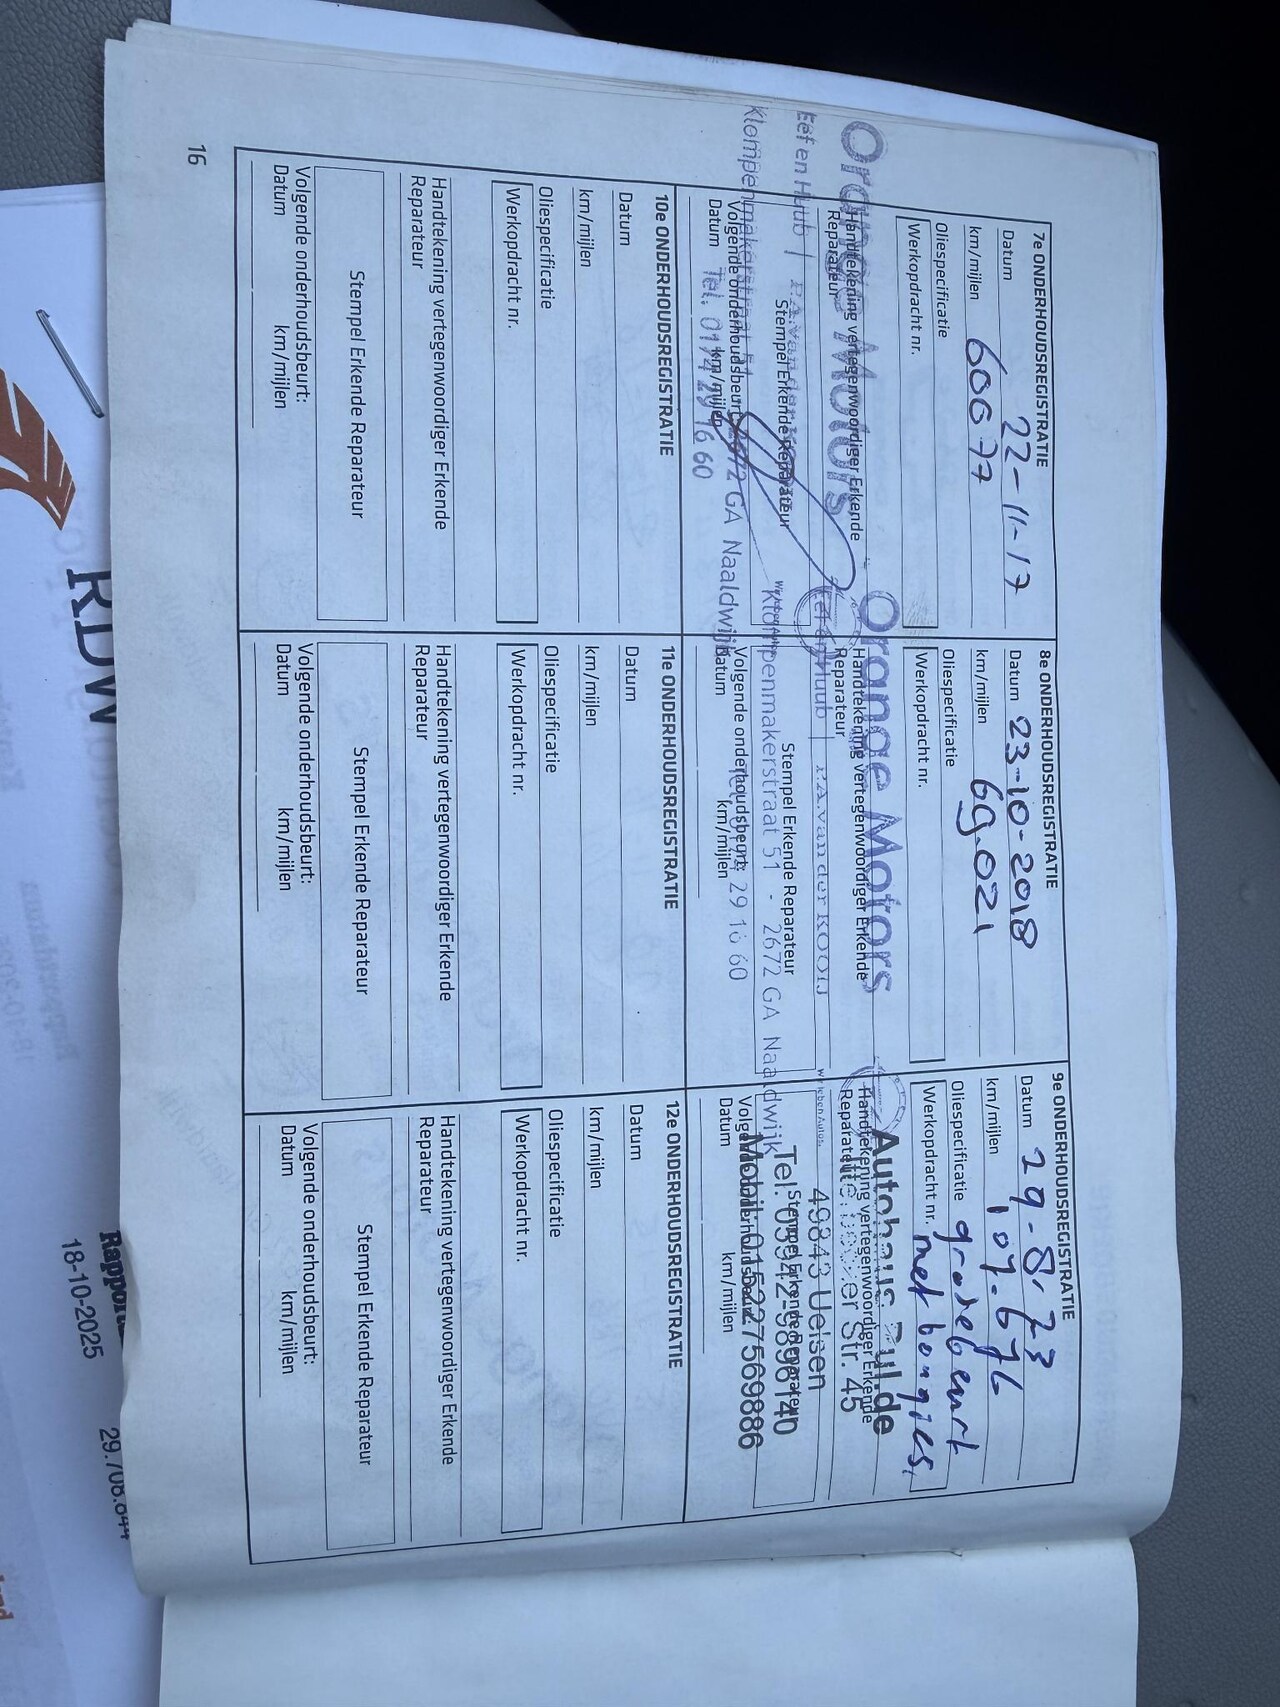 7e ONDERHOUDSREGISTRATIE
Datum 22-11-17
km/mijlen 60077
Oliespecificatie
Werkopdracht nr.
Handtekening vertegenwoordiger Erkende
Reparateur
Orange Motors
Eef en Huub |
Stempel Erkende Reparateur
Klompenmakerstraat 51 - 2672 GA Naaldwijk
Volgende onderhoudsbeurt:
Datum km/mijlen
Tel. 0174 29 16 60
8e ONDERHOUDSREGISTRATIE
Datum 23-10-2018
km/mijlen 69.021
Oliespecificatie
Werkopdracht nr.
Handtekening vertegenwoordiger Erkende
Reparateur
Orange Motors
Eef en Huub | P.A. van der KOOIJ
Stempel Erkende Reparateur
Klompenmakerstraat 51 - 2672 GA Naaldwijk
Volgende onderhoudsbeurt:
Datum km/mijlen
29 16 60
9e ONDERHOUDSREGISTRATIE
Datum 29-8-23
km/mijlen 107.676
Oliespecificatie grote beurt
Werkopdracht nr. met bougies,
Handtekening vertegenwoordiger Erkende
Reparateur
Wir leben Autos.
Str. 45
49843 Uelsen
Stempel Erkende Reparateur
Tel. 05942-9898140
Mobil: 015227569886
Volgende onderhoudsbeurt:
Datum km/mijlen
10e ONDERHOUDSREGISTRATIE
Datum
km/mijlen
Oliespecificatie
Werkopdracht nr.
Handtekening vertegenwoordiger Erkende
Reparateur
Stempel Erkende Reparateur
Volgende onderhoudsbeurt:
Datum km/mijlen
11e ONDERHOUDSREGISTRATIE
Datum
km/mijlen
Oliespecificatie
Werkopdracht nr.
Handtekening vertegenwoordiger Erkende
Reparateur
Stempel Erkende Reparateur
Volgende onderhoudsbeurt:
Datum km/mijlen
12e ONDERHOUDSREGISTRATIE
Datum
km/mijlen
Oliespecificatie
Werkopdracht nr.
Handtekening vertegenwoordiger Erkende
Reparateur
Stempel Erkende Reparateur
Volgende onderhoudsbeurt:
Datum km/mijlen
16
RDW
18-10-2025